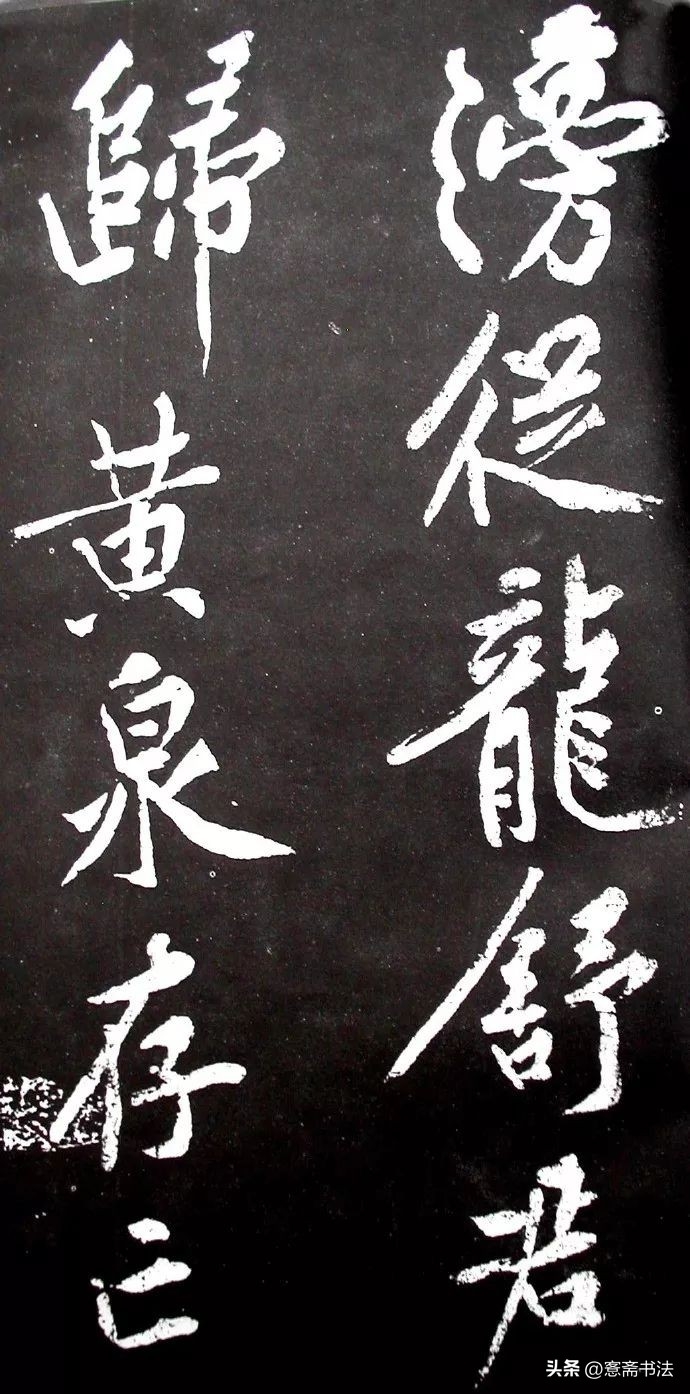 滂從龍舒君
歸黄泉存亡
头条 @愙斋书法